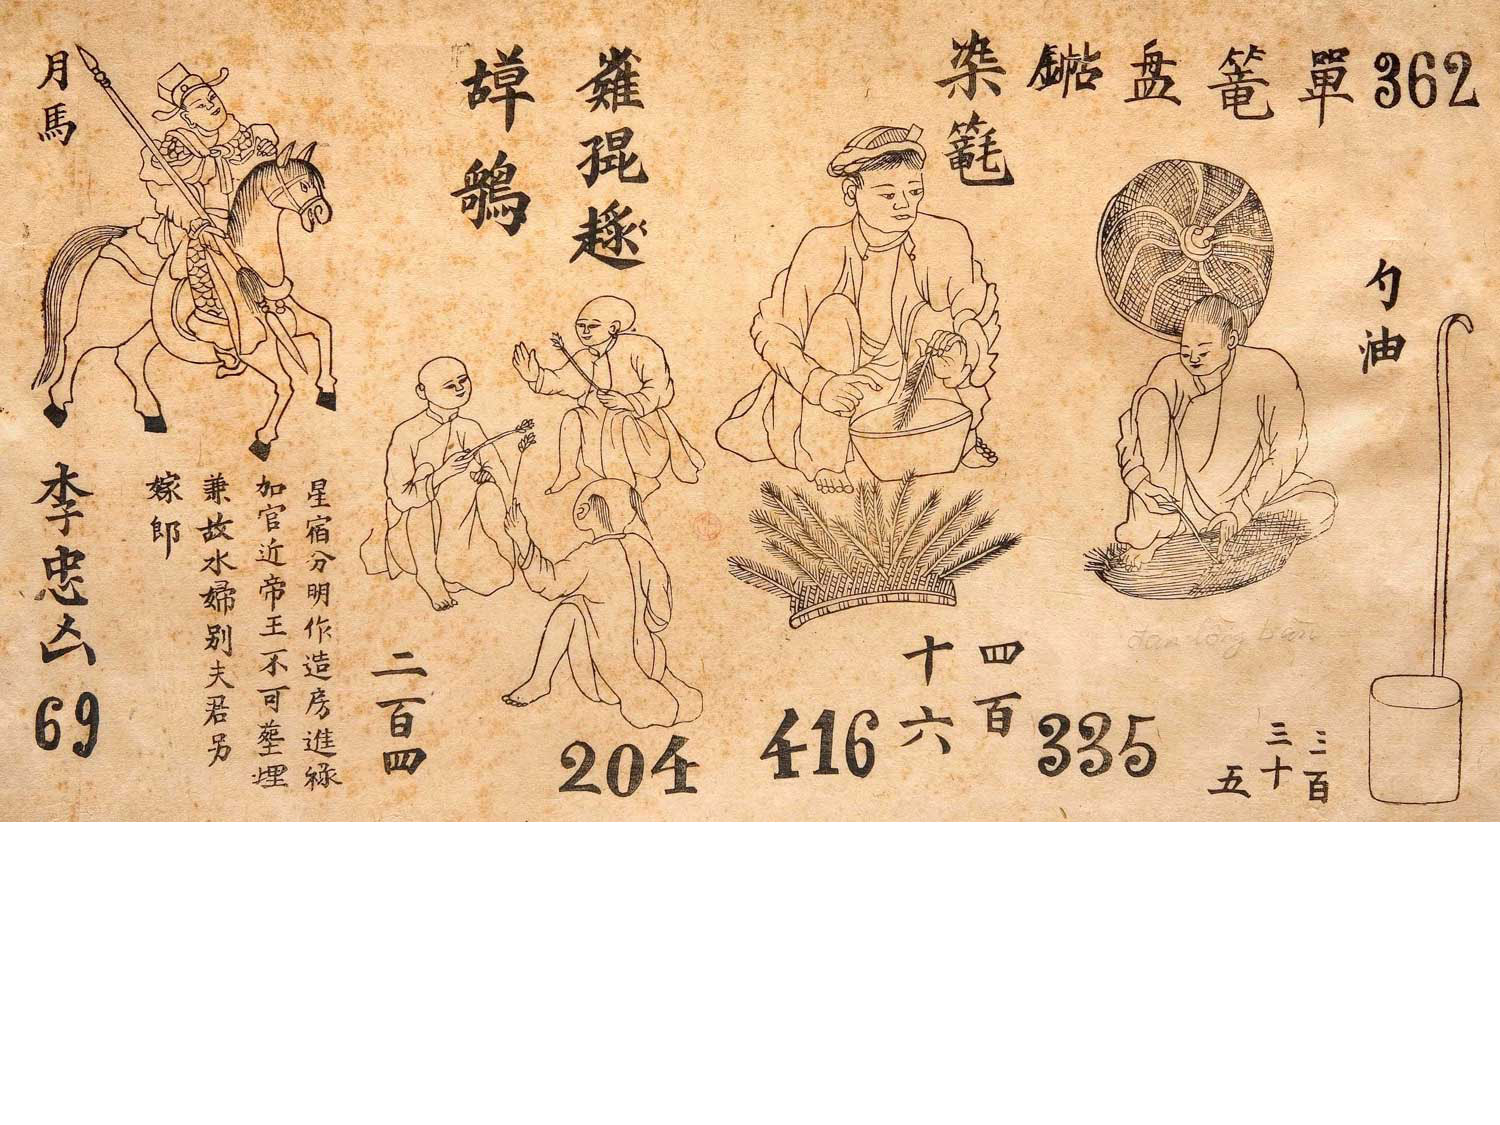 月馬
李忠凶
69
星宿分明作造房進祿
加官近帝王不可塟埋
兼故水婦别夫君另
嫁郎
二百四
204
染篭
四百
十六
416
362
單篭盘
335
三百
三十
五
勺油